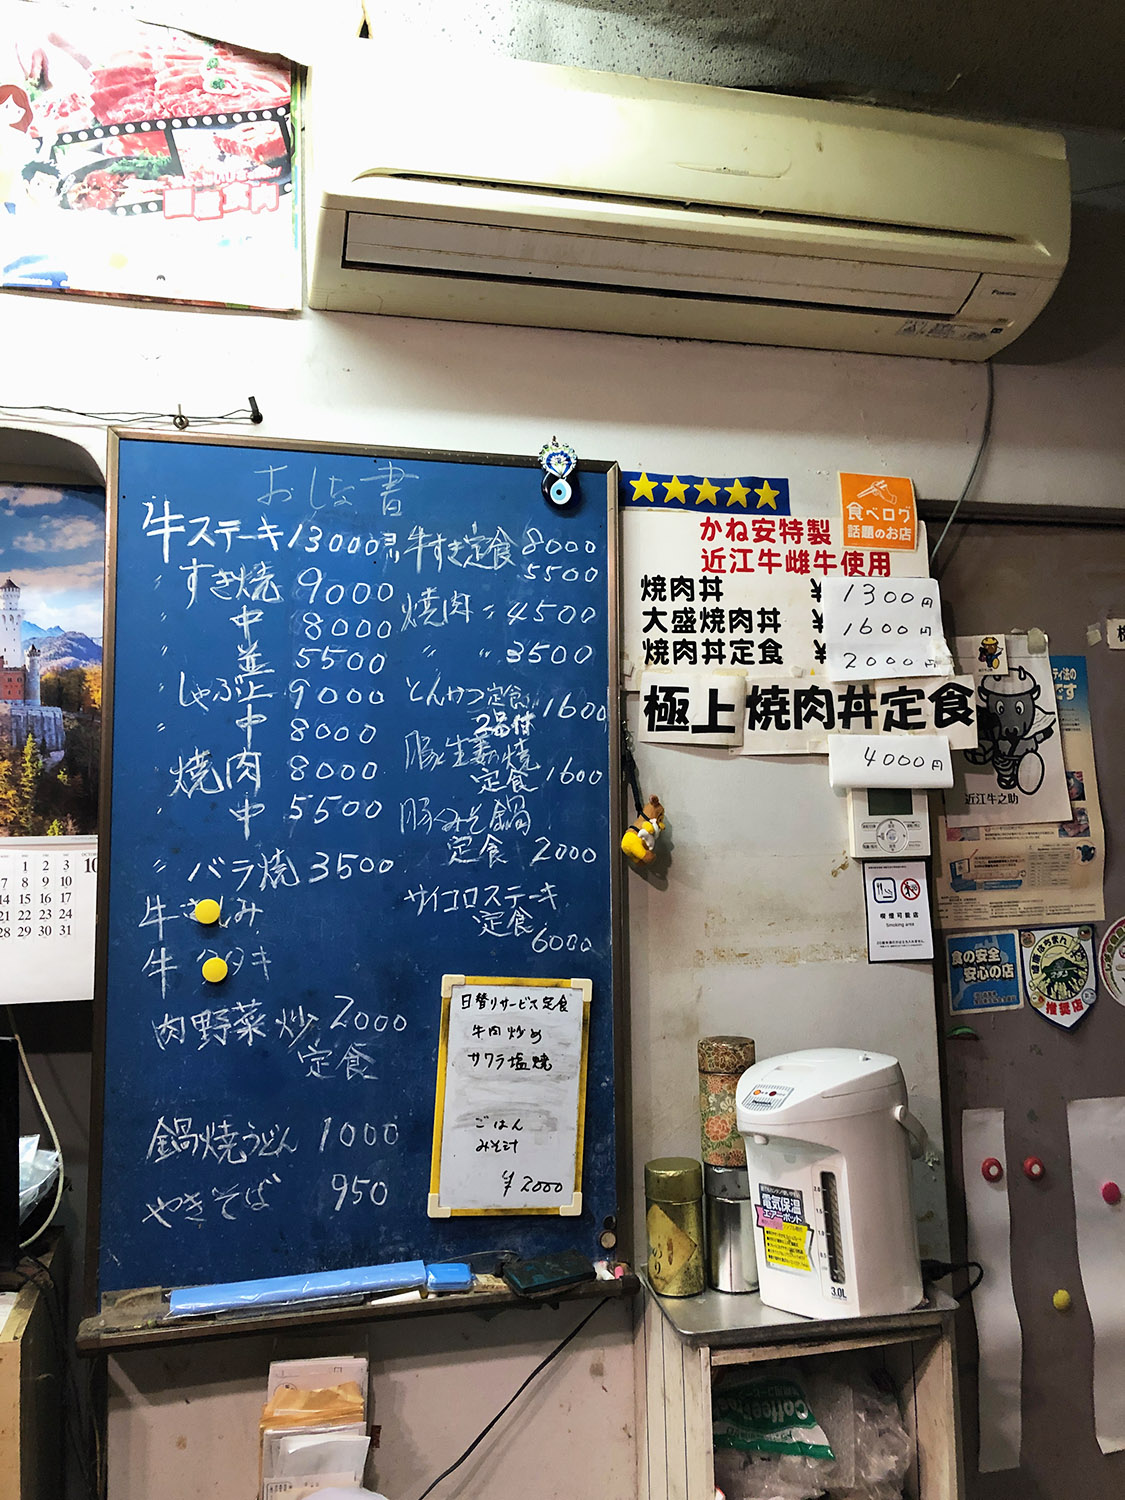 おしな書
牛ステーキ 13000
〃 すき焼 9000
〃 中 8000
〃 並 5500
〃 しゃぶ上 9000
〃 中 8000
〃 焼肉 8000
〃 中 5500
〃 バラ焼 3500
牛 み
牛 タキ
肉野菜炒 2000
定食
鍋焼うどん 1000
やきそば 950
牛すき定食 8000
5500
焼肉 〃 4500
〃 〃 3500
とんかつ定食 1600
2品付
豚生姜焼
定食 1600
豚みそ鍋
定食 2000
サイコロステーキ
定食
6000
日替りサービス定食
牛肉炒め
サワラ塩焼
ごはん
みそ汁
¥2000
★★★★★
食べログ
話題のお店
かね安特製
近江牛雌牛使用
焼肉丼 ¥1300円
大盛焼肉丼 ¥1600円
焼肉丼定食 ¥2000円
極上焼肉丼定食
4000円
近江牛之助
喫煙可能店
Smoking area
食の安全
安心の店
推奨店
電気保温
エアーポット
3.0L
Coffee
1 2 3
7 8 9 10
14 15 16 17
21 22 23 24
28 29 30 31
10